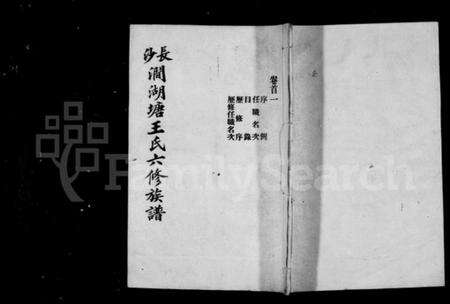 長沙澗湖塘王氏六修族譜
卷首一
序例
任職名次
目錄
歷修序
歷修任職名次
FamilySearch